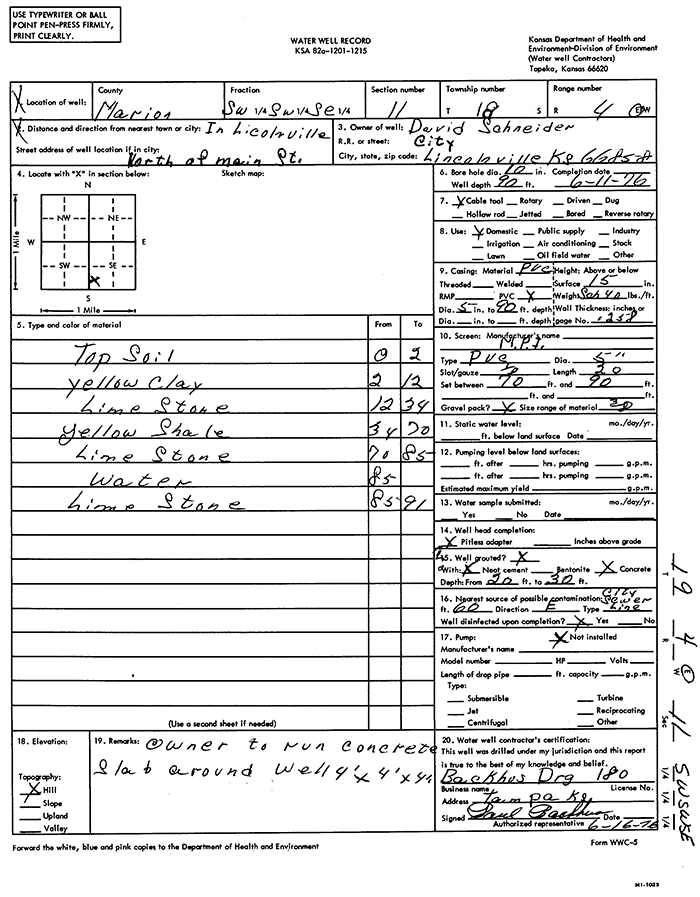 USE TYPEWRITER OR BALL
POINT PEN-PRESS FIRMLY,
PRINT CLEARLY.
WATER WELL RECORD
KSA 82a-1201-1215
Kansas Department of Health and
Environment-Division of Environment
(Water well Contractors)
Topeka, Kansas 66620
Location of well: County Fraction Section number Township number Range number
Marion SW 1/4 SW 1/4 SE 1/4 11 T 18 S R 4 E/W
Distance and direction from nearest town or city: In Licolnville
Street address of well location if in city:
North of main St.
3. Owner of well: David Schneider
R.R. or street: City
City, state, zip code: Lincolnville Ks 66858
4. Locate with "X" in section below: Sketch map:
N
NW NE
W E
1 Mile
SW SE
X
S
1 Mile
5. Type and color of material From To
Top Soil 0 2
yellow Clay 2 12
Lime Stone 12 34
yellow Shale 34 70
Lime Stone 70 85
Water 85
Lime Stone 85 91
(Use a second sheet if needed)
6. Bore hole dia. 10 in. Completion date
Well depth 90 ft. 6-11-76
7. X Cable tool Rotary Driven Dug
Hollow rod Jetted Bored Reverse rotary
8. Use: X Domestic Public supply Industry
Irrigation Air conditioning Stock
Lawn Oil field water Other
9. Casing: Material PVC Height: Above or below
Threaded Welded Surface 15 in.
RMP PVC X Weight Sch 40 lbs./ft.
Dia. 5 in. to 90 ft. depth Wall Thickness: inches or
Dia. in. to ft. depth gage No. .258
10. Screen: Manufacturer's name
Type PVC Dia. 5"
Slot/gauze Length 20
Set between 70 ft. and 90 ft.
ft. and ft.
Gravel pack? X Size range of material
11. Static water level: mo./day/yr.
ft. below land surface Date
12. Pumping level below land surfaces:
ft. after hrs. pumping g.p.m.
ft. after hrs. pumping g.p.m.
Estimated maximum yield g.p.m.
13. Water sample submitted: mo./day/yr.
Yes No Date
14. Well head completion:
X Pitless adapter Inches above grade
15. Well grouted? X
With: X Neat cement Bentonite X Concrete
Depth: From 20 ft. to 30 ft.
16. Nearest source of possible contamination: City Sewer
ft. 60 Direction E Type Line
Well disinfected upon completion? X Yes No
17. Pump: X Not installed
Manufacturer's name
Model number HP Volts
Length of drop pipe ft. capacity g.p.m.
Type:
Submersible Turbine
Jet Reciprocating
Centrifugal Other
18. Elevation:
Topography:
X Hill
Slope
Upland
Valley
19. Remarks: Owner to run Concrete
Slab around Well 4' x 4' x 4"
20. Water well contractor's certification:
This well was drilled under my jurisdiction and this report
is true to the best of my knowledge and belief.
Backhus Drg 180
Business name License No.
Address Tampa Ks.
Signed Paul Backhus Date
Authorized representative 6-16-76
Forward the white, blue and pink copies to the Department of Health and Environment
Form WWC-5
T 19
R 4 E W
Sec 11
1/4 1/4 1/4 SWSWSE
MI-1023